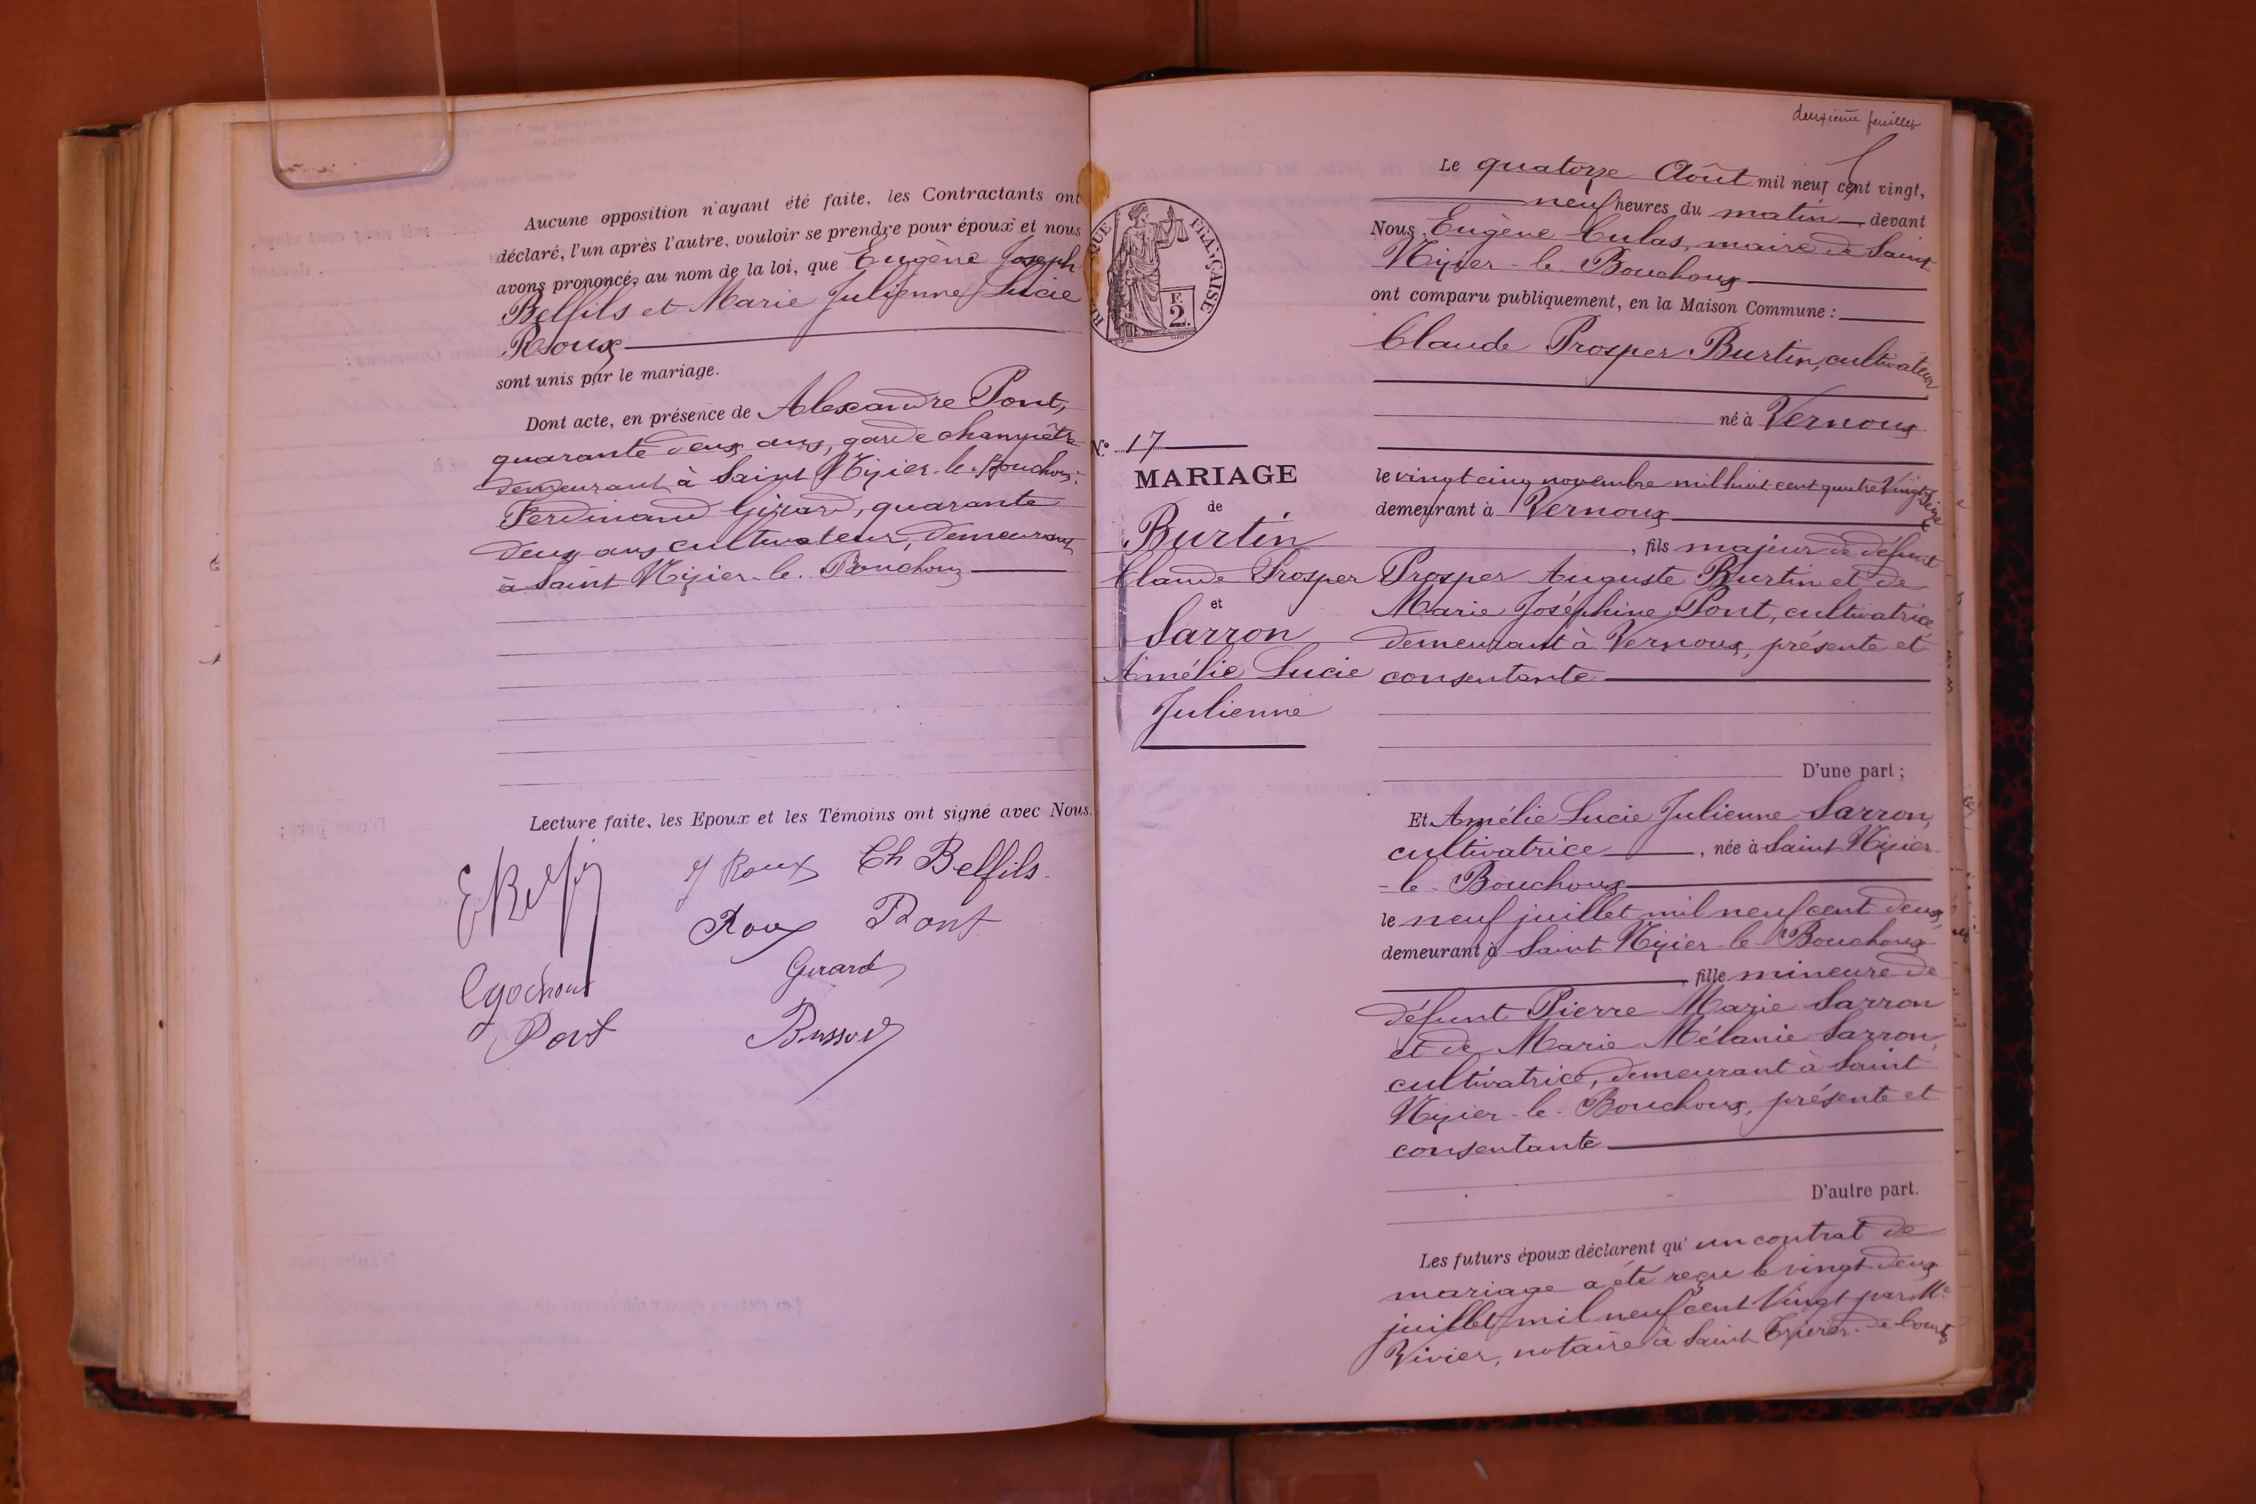 Aucune opposition n'ayant été faite, les Contractants ont
déclaré, l'un après l'autre, vouloir se prendre pour époux et nous
avons prononcé, au nom de la loi, que Eugène Joseph
Belfils et Marie Julienne Lucie
Roux
sont unis par le mariage.
Dont acte, en présence de Alexandre Pont,
quarante deux ans, garde champêtre
demeurant à Saint Nizier-le-Bouchoux;
Ferdinand Girard, quarante
deux ans cultivateur, demeurant
à Saint Nizier-le-Bouchoux
Lecture faite, les Epoux et les Témoins ont signé avec Nous.
J Roux Ch Belfils.
Roux Pont
Girard
Pont
deuxième feuillet
RÉPUBLIQUE FRANÇAISE
F.
2.
Le quatorze Août mil neuf cent vingt,
neuf heures du matin, devant
Nous Eugène Culas, maire de Saint
Nizier-le-Bouchoux
ont comparu publiquement, en la Maison Commune :
Claude Prosper Burtin, cultivateur
né à Vernoux
le vingt cinq novembre mil huit cent quatre vingt seize
demeurant à Vernoux
, fils majeur de défunt
Prosper Auguste Burtin et de
Marie Joséphine Pont, cultivatrice
demeurant à Vernoux, présente et
consentante
N° 17
MARIAGE
de
Burtin
Claude Prosper
et
Sarron
Amélie Lucie
Julienne
D'une part ;
Et Amélie Lucie Julienne Sarron,
cultivatrice, née à Saint Nizier-
-le-Bouchoux
le neuf juillet mil neuf cent deux,
demeurant à Saint Nizier-le-Bouchoux
, fille mineure de
défunt Pierre Marie Sarron
et de Marie Mélanie Sarron,
cultivatrice, demeurant à Saint
Nizier-le-Bouchoux, présente et
consentante
D'autre part.
Les futurs époux déclarent qu'un contrat de
mariage a été reçu le vingt deux
juillet mil neuf cent vingt par Me
Vivier, notaire à Saint Trivier-de-Courtes